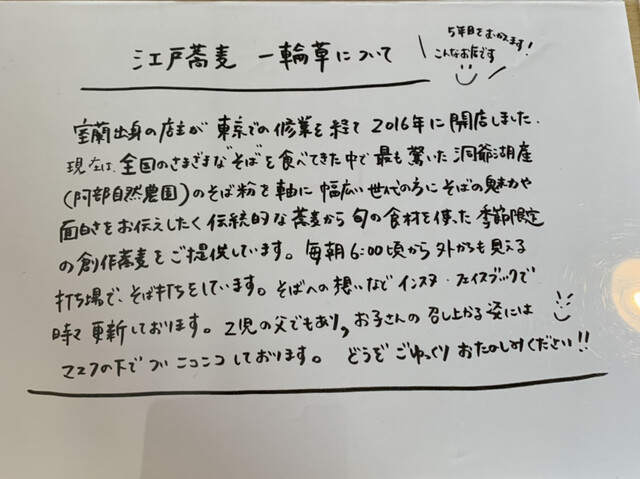 江戸蕎麦 一輪草について
5年目をむかえます!
こんなお店です
室蘭出身の店主が 東京での修業を経て 2016年に開店しました.
現在は、全国のさまざまな“そば”を食べてきた中で最も驚いた 洞爺湖産
(阿部自然農園)のそば粉を軸に 幅広い世代の方にそばの魅力や
面白さをお伝えしたく 伝統的な蕎麦から旬の食材を使った 季節限定
の創作蕎麦をご提供しています。 毎朝6:00頃から外からも見える
打ち場で、そば打ちをしています。そばへの想いなどインスタ・フェイスブックで
時々更新しております。 2児の父でもあり、お子さんの召し上がる姿には
マスクの下でついニコニコしております。 どうぞごゆっくりおたのしみください!!